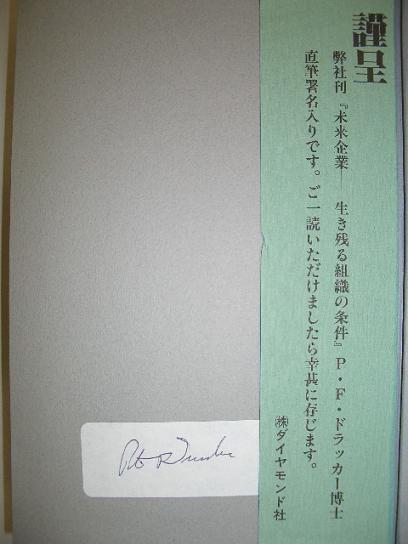 謹呈
弊社刊『未来企業── 生き残る組織の条件』P・F・ドラッカー博士
直筆署名入りです。ご一読いただけましたら幸甚に存じます。
㈱ダイヤモンド社